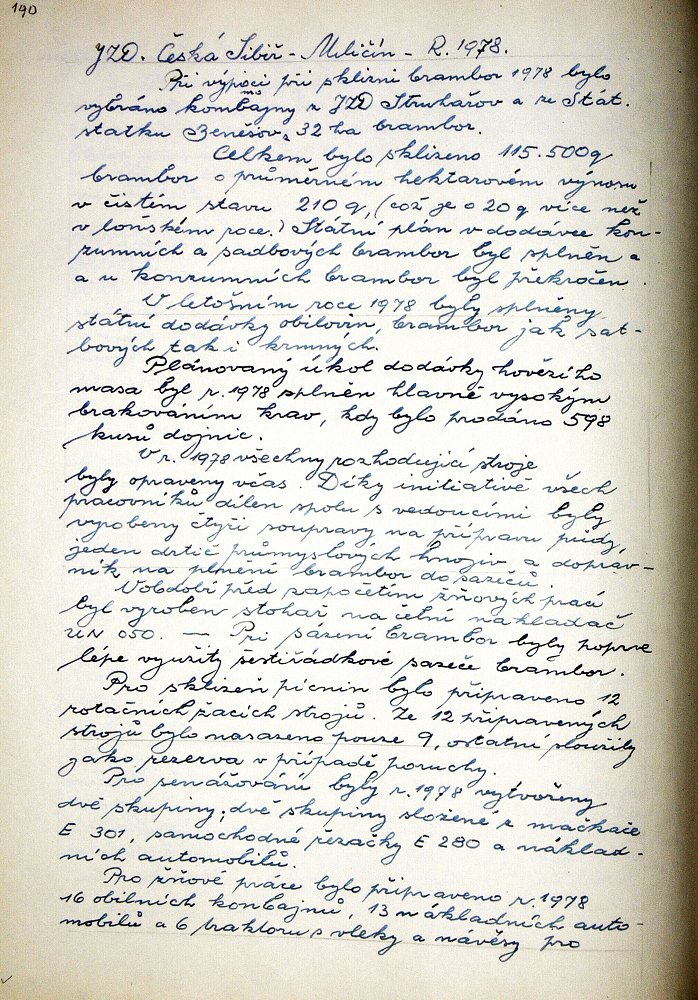 190
JZD. Česká Sibiř - Miličín - R. 1978.
Při výpoci při sklizni brambor 1978 bylo
vybráno kombajny z JZD Struhařov a ze Stát.
statku Benešov, 32 ha brambor.
Celkem bylo sklizeno 115.500q
brambor o průměrném hektarovém výnosu
v čistém stavu 210 q, (což je o 20 q více než
v loňském roce.) Státní plán v dodávce kon-
zumních a sadbových brambor byl splněn a
a u konzumních brambor byl překročen.
V letošním roce 1978 byly splněny
státní dodávky obilovin, brambor jak sat-
bových tak i krmných.
Plánovaný úkol dodávky hovězího
masa byl r. 1978 splněn hlavně vysokým
brakováním krav, kdy bylo prodáno 598
kusů dojnic.
V r. 1978 všechny rozhodující stroje
byly opraveny včas. Díky initiativě všech
pracovníků dílen spolu s vedoucími byly
vyrobeny čtyři soupravy na přípravu půdy,
jeden drtič průmyslových hnojiv a doprav-
ník na plnění brambor do sazečů.
V období před započetím žňových prací
byl vyroben stohař na čelní nakladač
UN 050. — Při sázení brambor byly poprve
lépe využity šestiřádkové sazeče brambor.
Pro sklizeň pícnin bylo připraveno 12
rotačních žacích strojů. Ze 12 připravených
strojů bylo nasazeno pouze 9, ostatní sloužily
jako rezerva v případě poruchy.
Pro senážování byly r. 1978 vytvořeny
dvě skupiny; dvě skupiny složené z mačkače
E 301, samochodné řezačky E 280 a náklad-
ních automobilů.
Pro žňové práce bylo připraveno r. 1978
16 obilních kombajnů, 13 nákladních auto-
mobilů a 6 traktorů s vleky a návěsy pro